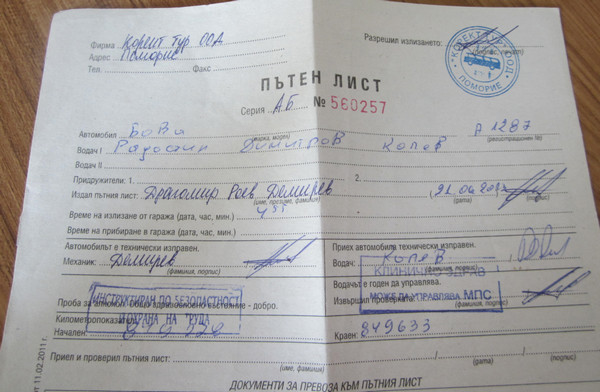 Фирма Корект тур ООД Разрешил излизането:
Адрес Поморие
Тел. Факс
КОРЕКТ ТУР ООД ПОМОРИЕ
ПЪТЕН ЛИСТ
Серия АБ № 560257
Автомобил БоВа Р 1287
(марка, марка) (регистрационен №)
Водач I Радостин Димитров Колев
Водач II
Придружители: 1. 2.
Издал пътния лист: Драгомир Раев Демирев
(име, презиме, фамилия) (дата) (подпис)
Време на излизане от гаража (дата, час, мин.)
Време на прибиране в гаража (дата, час, мин.)
Автомобилът е технически изправен. Приех автомобила технически изправен.
Механик: Демирев Водач: Колев
(фамилия, подпис) (фамилия, подпис)
Водачът е годен да управлява.
ИНСТРУКТИРАН ПО БЕЗОПАСНОСТ
И ОХРАНА НА ТРУДА
МОЖЕ ДА УПРАВЛЯВА МПС
Проба за алкохол. Общо здравословно състояние - добро. Извършил проверката:
(фамилия, подпис)
Километропоказател
Начален: Краен: 849633
Приел и проверил пътния лист:
(име, фамилия) (дата) (подпис)
ДОКУМЕНТИ ЗА ПРЕВОЗА КЪМ ПЪТНИЯ ЛИСТ
от 11.02.2011 г.